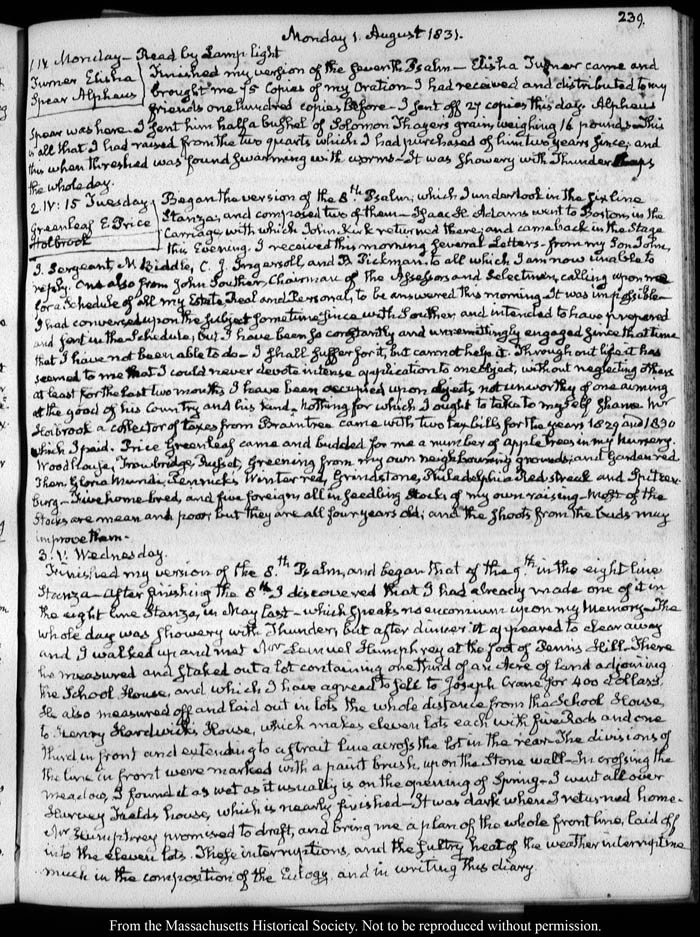 239.
Monday 1. August 1831.
1. IV. Monday — Read by Lamp light
Turner Elisha
Spear Alpheus
Finished my version of the seventh Psalm — Elisha Turner came and
brought me 75 Copies of my Oration — I had received and distributed to my
friends one hundred copies before — I sent off 27 copies this day. Alpheus
Spear was here — I sent him half a bushel of Solomon Thayer's grain, weighing 16 pounds — This
is all that I had raised from the two quarts which I had purchased of him two years since; and
this when threshed was found swarming with worms — It was showery with Thunder
the whole day.
2. IV: 15 Tuesday
Greenleaf E. Price
Holbrook
Began the version of the 8.th Psalm, which I undertook in the six line
Stanza; and composed two of them — Isaac H. Adams went to Boston, in the
Carriage, with which John Kirk returned there; and came back in the Stage
this Evening. I received this morning several Letters — from my Son John,
J. Sergeant, N. Biddle, C. J. Ingersoll, and B. Pickman to all which I am now unable to
reply. One also from John Souther, Chairman of the Assessors and Selectmen, calling upon me
for a Schedule of all my Estate, Real and Personal, to be answered this morning — It was impossible —
I had conversed upon the subject sometime since with Souther, and intended to have prepared
and sent in the Schedule; but I have been so constantly and unremittingly engaged since that time
that I have not been able to do — I shall suffer for it, but cannot help it. Through out life it has
seemed to me that I could never devote intense application to one object, without neglecting others
at least for the last two months I have been occupied upon objects not unworthy of one aiming
at the good of his Country and his kind, nothing for which I ought to take to myself shame Mr
Holbrook a collector of taxes from Braintree came with two tax bills for the years 1829 and 1830
which I paid. Price Greenleaf came and budded for me a number of apple trees in my Nursery.
Woodhouse, Trowbridge, Russet, Greening from my own neighbouring grounds; and Gardenred
Then Gloria Mundi, Pennock's Winter red, Grindstone, Philadelphia Redstreak and Spitzen-
burg — Five home-bred, and five foreign, all in seedling stocks of my own raising — Most of the
stocks are mean and poor, but they are all four years old; and the shoots from the buds may
improve them.
3. V. Wednesday.
Finished my version of the 8.th Psalm, and began that of the 9.th in the eight line
Stanza — After finishing the 8th I discovered that I had already made one of it in
the eight line Stanza, in May last — which speaks no encomium upon my Memory — The
whole day was showery with Thunder, but after dinner it appeared to clear away
and I walked up and met Mr Lemuel Humphrey at the foot of Penns Hill — There
he measured and staked out a lot containing one third of an Acre of Land adjoining
the School House, and which I have agreed to sell to Joseph Crane for 400 dollars.
He also measured off and laid out in lots the whole distance from the School House,
to Henry Hardwick's House, which makes eleven lots each with five Rods and one
third in front and extending to a strait line across the lot in the rear — The divisions of
the line in front were marked with a paint brush, upon the Stone wall — In crossing the
meadow, I found it as wet as it usually is on the opening of Spring — I went all over
Harvey Fields house, which is nearly finished — It was dark when I returned home —
Mr Humphrey promised to draft, and bring me a plan of the whole front line, laid off
into the eleven lots. These interruptions, and the sultry heat of the weather interrupt me
much in the composition of the Eulogy, and in writing this diary
From the Massachusetts Historical Society. Not to be reproduced without permission.